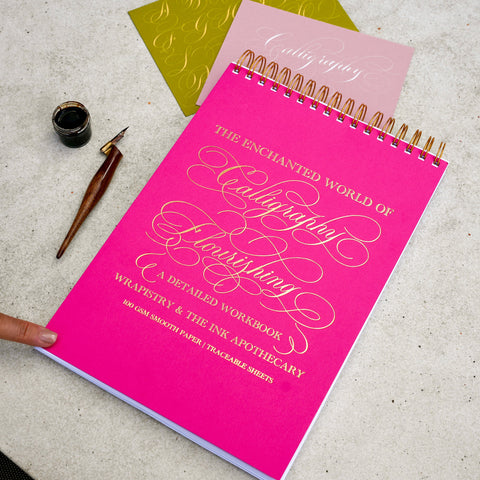 Calligraphy
THE ENCHANTED WORLD OF
Calligraphy
Flourishing
& A DETAILED WORKBOOK
WRAPISTRY & THE INK APOTHECARY
100 GSM SMOOTH PAPER | TRACEABLE SHEETS